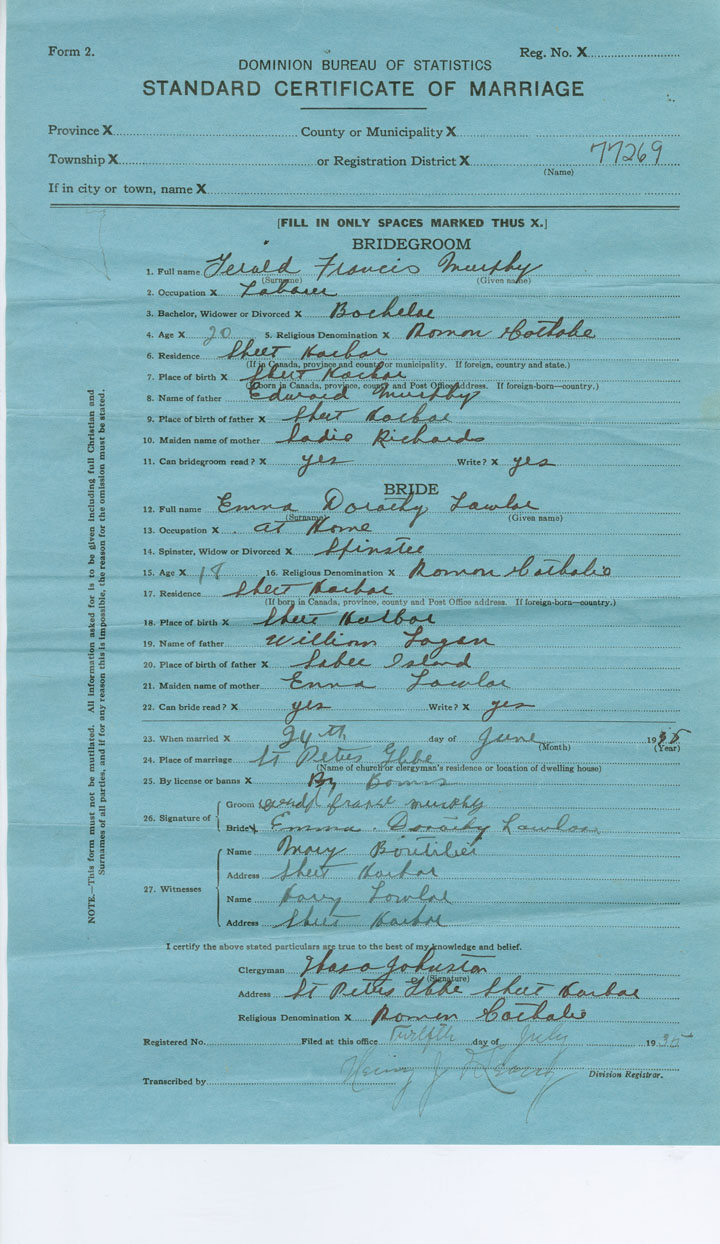 Form 2.
Reg. No. X
DOMINION BUREAU OF STATISTICS
STANDARD CERTIFICATE OF MARRIAGE
Province X County or Municipality X
Township X or Registration District X 77269
(Name)
If in city or town, name X
[FILL IN ONLY SPACES MARKED THUS X.]
BRIDEGROOM
1. Full name Jerald Francis Murphy
(Surname) (Given name)
2. Occupation X Labour
3. Bachelor, Widower or Divorced X Bachelor
4. Age X 20 5. Religious Denomination X Roman
6. Residence Sheet Harbor
(If in Canada, province and county or municipality. If foreign, country and state.)
7. Place of birth X Sheet Harbor
(If born in Canada, province, county and Post Office address. If foreign-born—country.)
8. Name of father Edward Murphy
9. Place of birth of father X Sheet Harbor
10. Maiden name of mother Sadie Richards
11. Can bridegroom read? X yes Write? X yes
BRIDE
12. Full name Emma Dorothy Lawlor
(Surname) (Given name)
13. Occupation X at Home
14. Spinster, Widow or Divorced X Spinster
15. Age X 18 16. Religious Denomination X Roman Catholic
17. Residence Sheet Harbor
(If born in Canada, province, county and Post Office address. If foreign-born—country.)
18. Place of birth X Sheet Harbor
19. Name of father William Logan
20. Place of birth of father X Sable Island
21. Maiden name of mother Emma Lawlor
22. Can bride read? X yes Write? X yes
23. When married X 24th day of June 1935
(Month) (Year)
24. Place of marriage St Peters Glebe
(Name of church or clergyman's residence or location of dwelling house)
25. By license or banns X By Banns
26. Signature of
Groom Murphy
Bride X Emma Dorothy Lawlor
27. Witnesses
Name Mary Boutilier
Address Sheet Harbor
Name Harry Lawlor
Address Sheet Harbor
I certify the above stated particulars are true to the best of my knowledge and belief.
Clergyman Johnston
(Signature)
Address St Peters Glebe Sheet Harbor
Religious Denomination X Roman Catholic
Registered No. Filed at this office Twelfth day of July 1935
Henry J
Division Registrar.
Transcribed by
NOTE.—This form must not be mutilated. All information asked for is to be given including full Christian and
Surnames of all parties, and if for any reason this is impossible, the reason for the omission must be stated.